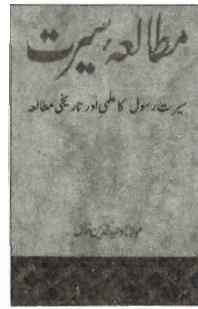 مطالعۂ سیرت
سیرت رسول کا علمی اور تاریخی مطالعہ
مولانا وحید الدین خاں